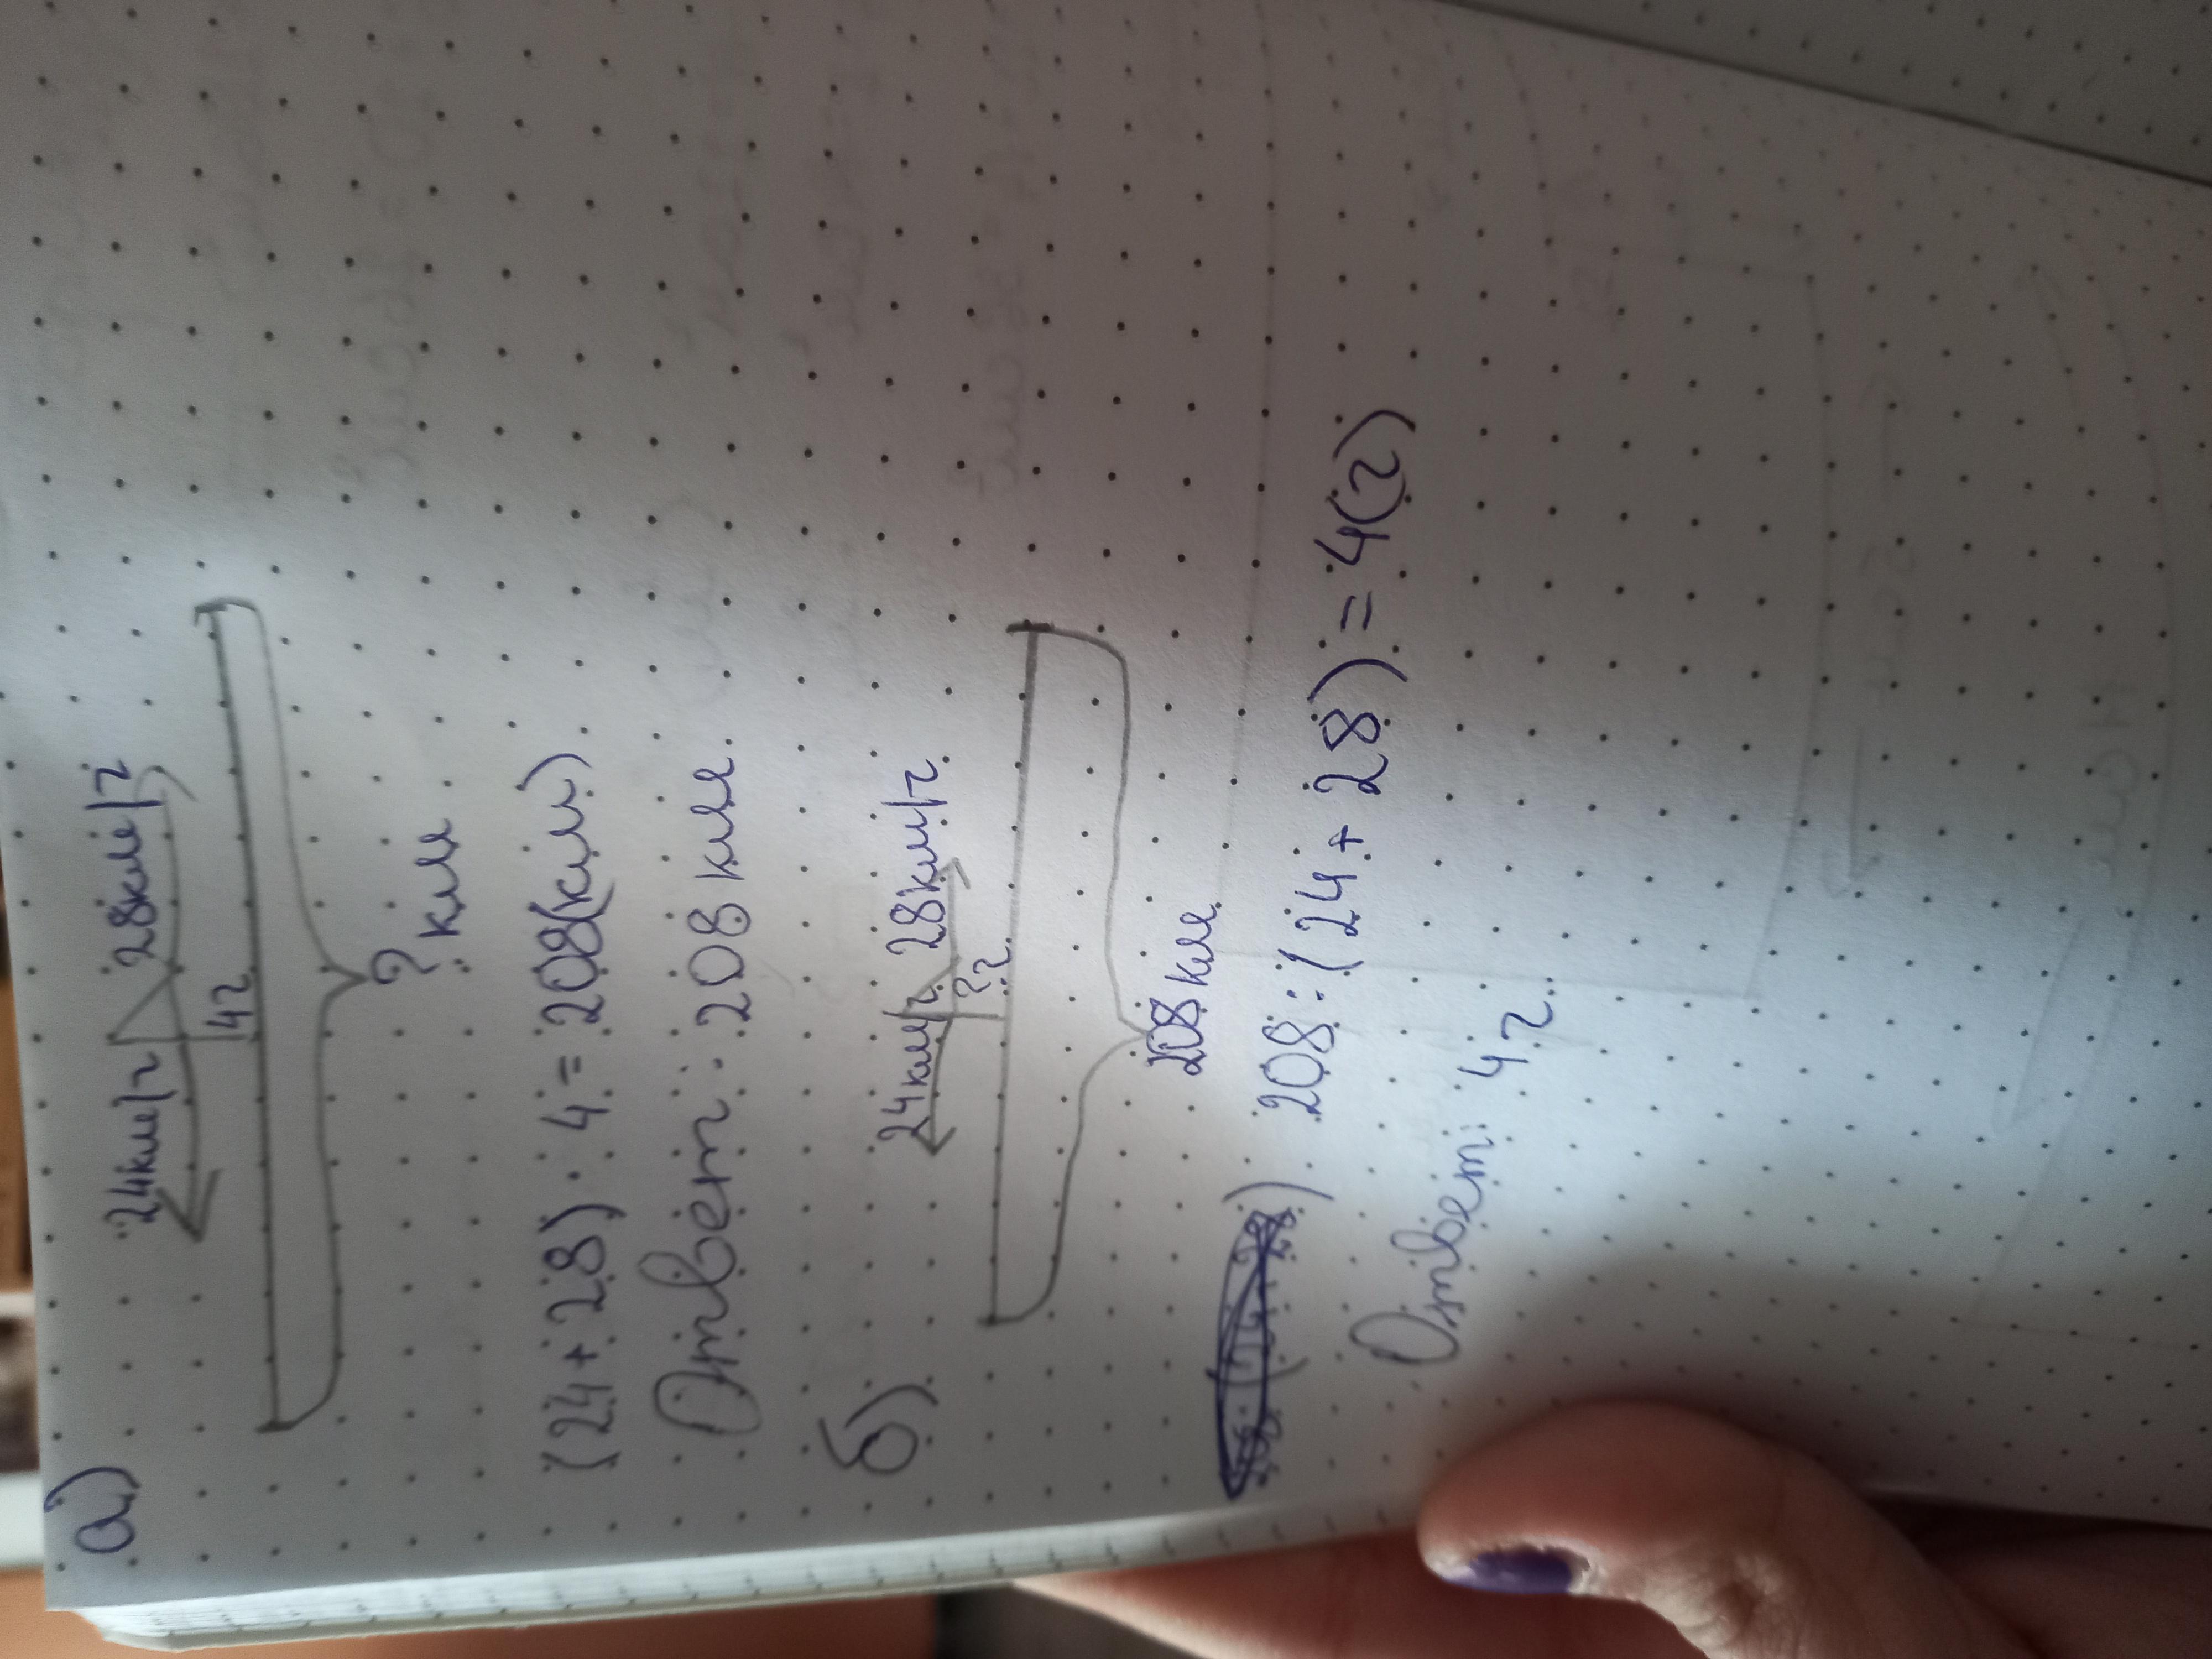 а)
24км/ч 28км/ч
4ч
? км
(24+28) · 4 = 208(км)
Ответ: 208 км
б)
24км/ч 28км/ч
? ч
208 км
208 : (24 + 28) = 4(ч)
Ответ: 4 ч